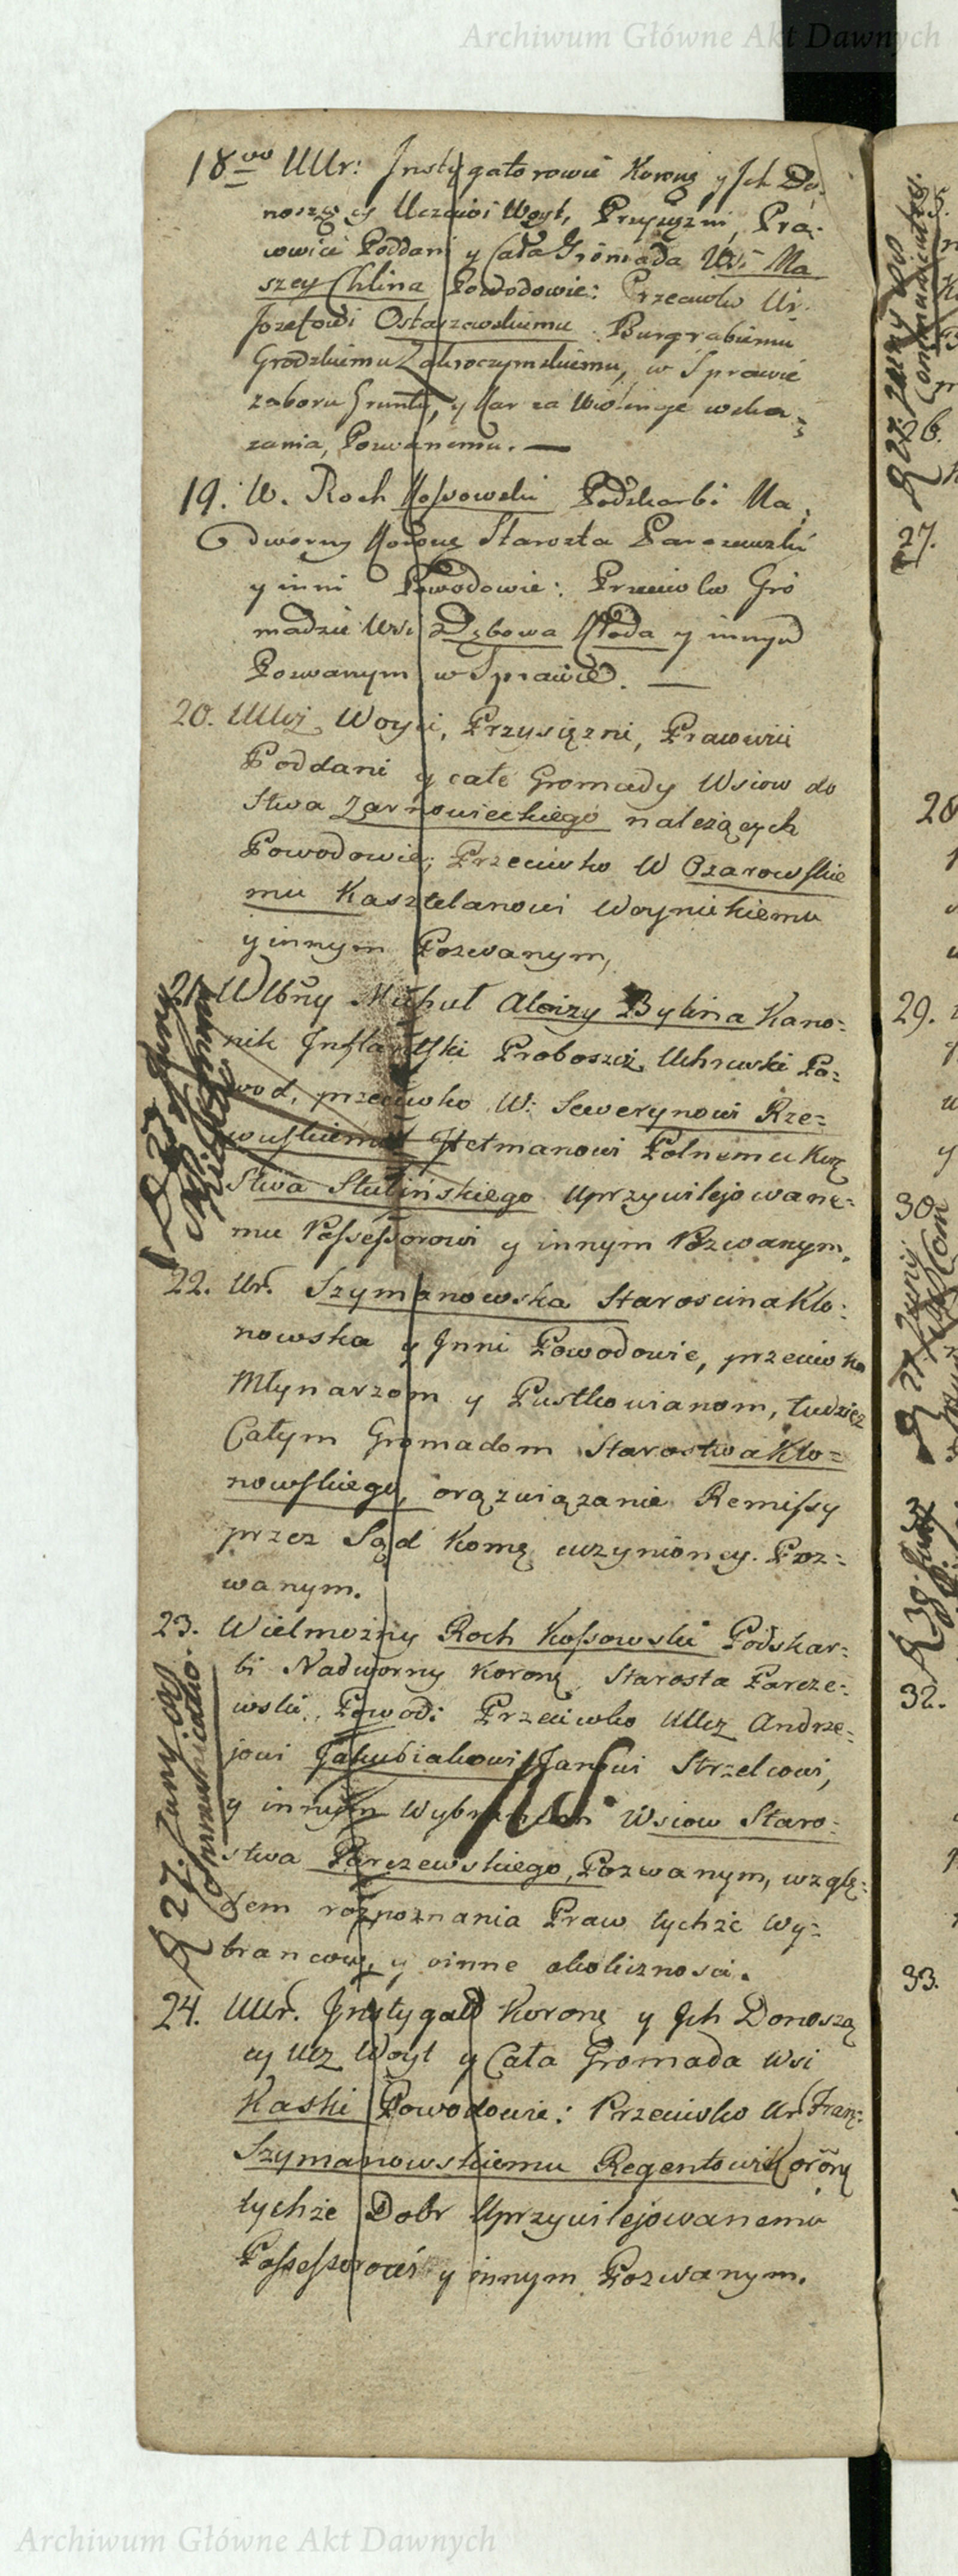 Archiwum Główne Akt Dawnych
18vo UUr: Instygatorowie Koronę y Ich Do,
noszący Uczciwi Woyt, Przysężni, Pra:
cowici Poddani y Cała Gromada Wsi Ma
szey Chlina Powodowie: Przeciwko Ur.
Jozefowi Ostaszewskiemu Burgrabiemu
Grodzkiemu Zakroczymskiemu, w Sprawie
zaboru Gruntu, y Kar za wska:
zania, Pozwanemu. —
19. W. Roch Kossowski Podskarbi Na:
dworny Koronę Starosta Parczewski
y inni Powodowie: Przeciwko Gro
madzie Wsi Dębowa Kłoda y innym
Pozwanym w Sprawie. —
20. UUcz Woyci, Przysiężni, Pracowici
Poddani y całe Gromady Wsiow do
Stwa Zarnowieckiego należących
Powodowie; Przeciwko W Ozarowskie
mu Kasztelanowi Woynickiemu
y innym Pozwanym,
21. Wlbny Michał Aloizy Bylina Kano:
nik Inflantski Proboszcz Uhruski Po:
wod, przeciwko W: Sewerynowi Rze=
wuskiemu Hetmanowi Polnemu Kor
Stwa Stulińskiego Uprzywilejowane:
mu Possessorowi y innym Pozwanym.
22. Ur. Szymanowska Starościna Kło:
nowska y Inni Powodowie, przeciwko
Młynarzom y Pustkowianom, tudzież
Całym Gromadom Starostwa Kło=
nowskiego, orązwiązanie Remissy
przez Sąd Komę uczynioney. Poz=
wanym.
23. Wielmożny Roch Kossowski Podskar:
bi Nadworny Koronę Starosta Parcze:
wski, Powod: Przeciwko UUcz Andrze:
jowi Jakubiakowi, Janowi Strzelcowi,
y innym Wybrancom Wsiow Staro:
stwa Parczewskiego, Pozwanym, wzglę:
dem rozpoznania Praw tychże Wy:
brancow, y oinne okoliczności.
24. UUr. Instygato Koronę y Ich Donoszą
cy Ucz Woyt y Cała Gromada Wsi
Kaski Powodowie: Przeciwko Ur Fran:
Szymanowskiemu Regentowi Koronę
tychże Dobr Uprzywilejowanemu
Possessorowi y innym Pozwanym.
27. Juny
Communicatio.
26.
27.
28
29.
30.
32.
33.
Archiwum Główne Akt Dawnych